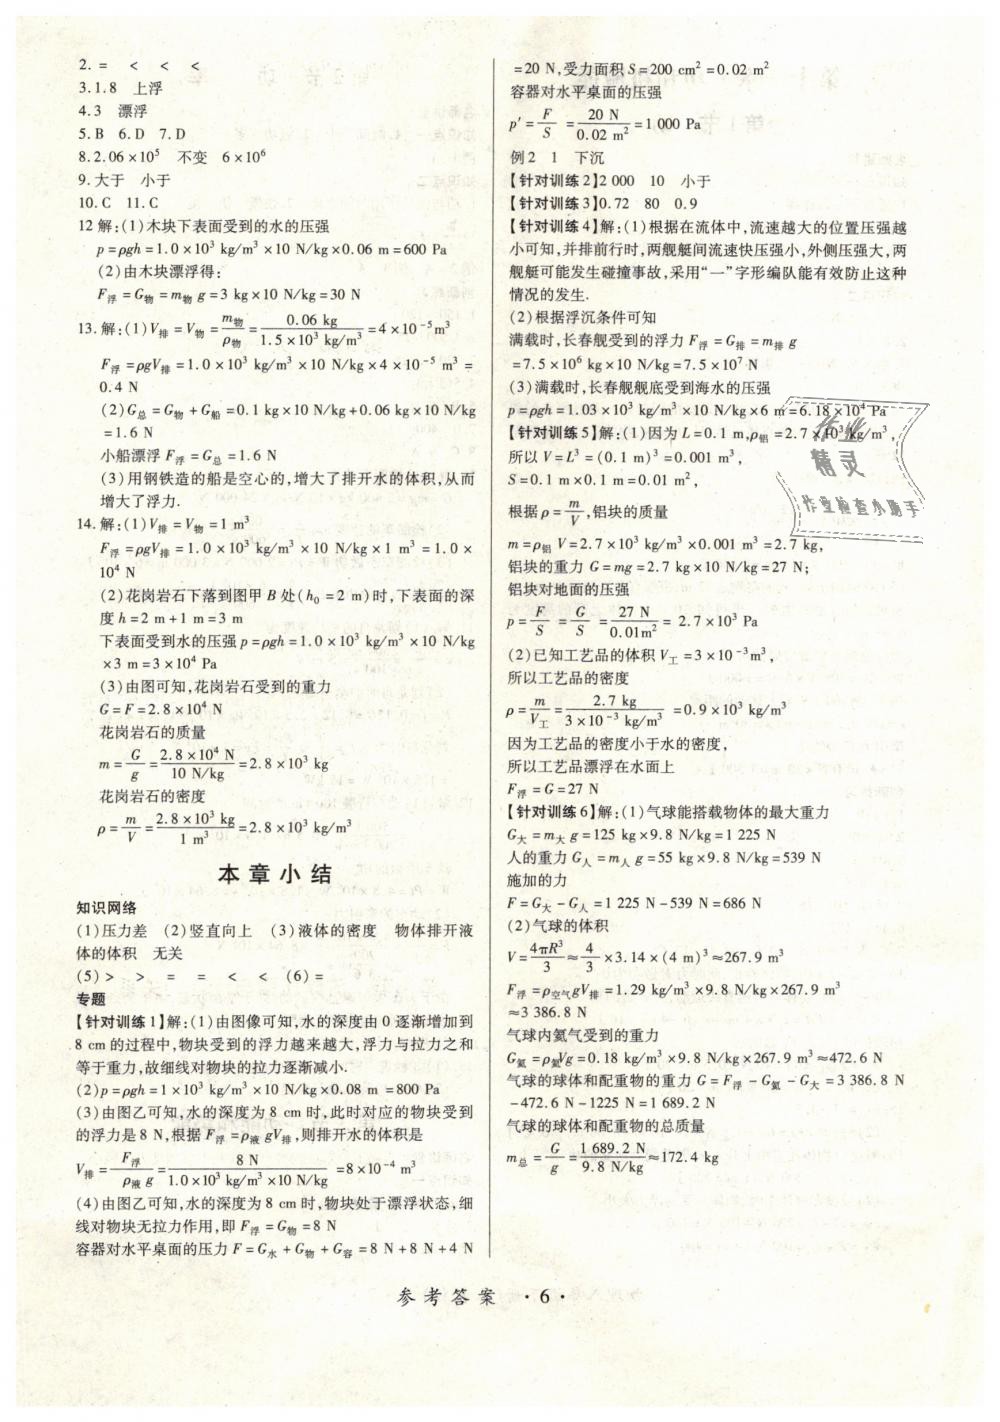 2. =　<　<　<
3.1.8　上浮
4.3　漂浮
5.B　6.D　7.D
8.2.06×10⁵　不变　6×10⁶
9.大于　小于
10.C　11.C
12 解:(1)木块下表面受到的水的压强
p=ρgh=1.0×10³ kg/m³×10 N/kg×0.06 m=600 Pa
(2)由木块漂浮得:
F浮=G物=m物 g=3 kg×10 N/kg=30 N
13.解:(1)V排=V物=m物/ρ物=0.06 kg/1.5×10³ kg/m³=4×10⁻⁵m³
F浮=ρgV排=1.0×10³ kg/m³×10 N/kg×4×10⁻⁵ m³=
0.4 N
(2)G总=G物+G船=0.1 kg×10 N/kg+0.06 kg×10 N/kg
=1.6 N
小船漂浮 F浮=G总=1.6 N
(3)用钢铁造的船是空心的,增大了排开水的体积,从而
增大了浮力.
14.解:(1)V排=V物=1 m³
F浮=ρgV排=1.0×10³ kg/m³×10 N/kg×1 m³=1.0×
10⁴ N
(2)花岗岩石下落到图甲 B 处(h₀=2 m)时,下表面的深
度 h=2 m+1 m=3 m
下表面受到水的压强 p=ρgh=1.0×10³ kg/m³×10 N/kg
×3 m=3×10⁴ Pa
(3)由图可知,花岗岩石受到的重力
G=F=2.8×10⁴ N
花岗岩石的质量
m=G/g=2.8×10⁴ N/10 N/kg=2.8×10³ kg
花岗岩石的密度
ρ=m/V=2.8×10³ kg/1 m³=2.8×10³ kg/m³
本章小结
知识网络
(1)压力差　(2)竖直向上　(3)液体的密度　物体排开液
体的体积　无关
(5)>　>　=　=　<　<　(6)=
专题
【针对训练1】解:(1)由图像可知,水的深度由0逐渐增加到
8 cm 的过程中,物块受到的浮力越来越大,浮力与拉力之和
等于重力,故细线对物块的拉力逐渐减小.
(2)p=ρgh=1×10³ kg/m³×10 N/kg×0.08 m=800 Pa
(3)由图乙可知,水的深度为 8 cm 时,此时对应的物块受到
的浮力是 8 N,根据 F浮=ρ液 gV排,则排开水的体积是
V排=F浮/ρ液 g=8 N/1.0×10³ kg/m³×10 N/kg=8×10⁻⁴ m³
(4)由图乙可知,水的深度为 8 cm 时,物块处于漂浮状态,细
线对物块无拉力作用,即 F浮=G物=8 N
容器对水平桌面的压力 F=G水+G物+G容=8 N+8 N+4 N
=20 N,受力面积 S=200 cm²=0.02 m²
容器对水平桌面的压强
p′=F/S=20 N/0.02 m²=1 000 Pa
例2　1　下沉
【针对训练2】2 000　10　小于
【针对训练3】0.72　80　0.9
【针对训练4】解:(1)根据在流体中,流速越大的位置压强越
小可知,并排前行时,两舰艇间流速快压强小,外侧压强大,两
舰艇可能发生碰撞事故,采用“一”字形编队能有效防止这种
情况的发生.
(2)根据浮沉条件可知
满载时,长春舰受到的浮力 F浮=G排=m排 g
=7.5×10⁶ kg×10 N/kg=7.5×10⁷ N
(3)满载时,长春舰舰底受到海水的压强
p=ρgh=1.03×10³ kg/m³×10 N/kg×6 m=6.18×10⁴ Pa
【针对训练5】解:(1)因为 L=0.1 m,ρ铝=2.7×10³ kg/m³,
所以 V=L³=(0.1 m)³=0.001 m³,
S=0.1 m×0.1 m=0.01 m²,
根据 ρ=m/V,铝块的质量
m=ρ铝 V=2.7×10³ kg/m³×0.001 m³=2.7 kg,
铝块的重力 G=mg=2.7 kg×10 N/kg=27 N;
铝块对地面的压强
p=F/S=G/S=27 N/0.01m²=2.7×10³ Pa
(2)已知工艺品的体积 V工=3×10⁻³m³,
所以工艺品的密度
ρ=m/V工=2.7 kg/3×10⁻³ kg/m³=0.9×10³ kg/m³
因为工艺品的密度小于水的密度,
所以工艺品漂浮在水面上
F浮=G=27 N
【针对训练6】解:(1)气球能搭载物体的最大重力
G大=m大 g=125 kg×9.8 N/kg=1 225 N
人的重力 G人=m人 g=55 kg×9.8 N/kg=539 N
施加的力
F=G大-G人=1 225 N-539 N=686 N
(2)气球的体积
V=4πR³/3≈4/3×3.14×(4 m)³≈267.9 m³
F浮=ρ空气gV排=1.29 kg/m³×9.8 N/kg×267.9 m³
≈3 386.8 N
气球内氦气受到的重力
G氦=ρ氦Vg=0.18 kg/m³×9.8 N/kg×267.9 m³≈472.6 N
气球的球体和配重物的重力 G=F浮-G氦-G大=3 386.8 N
-472.6 N-1225 N=1 689.2 N
气球的球体和配重物的总质量
m总=G/g=1 689.2 N/9.8 N/kg≈172.4 kg
作业
精灵
作业检查小助手
参考答案　·6·